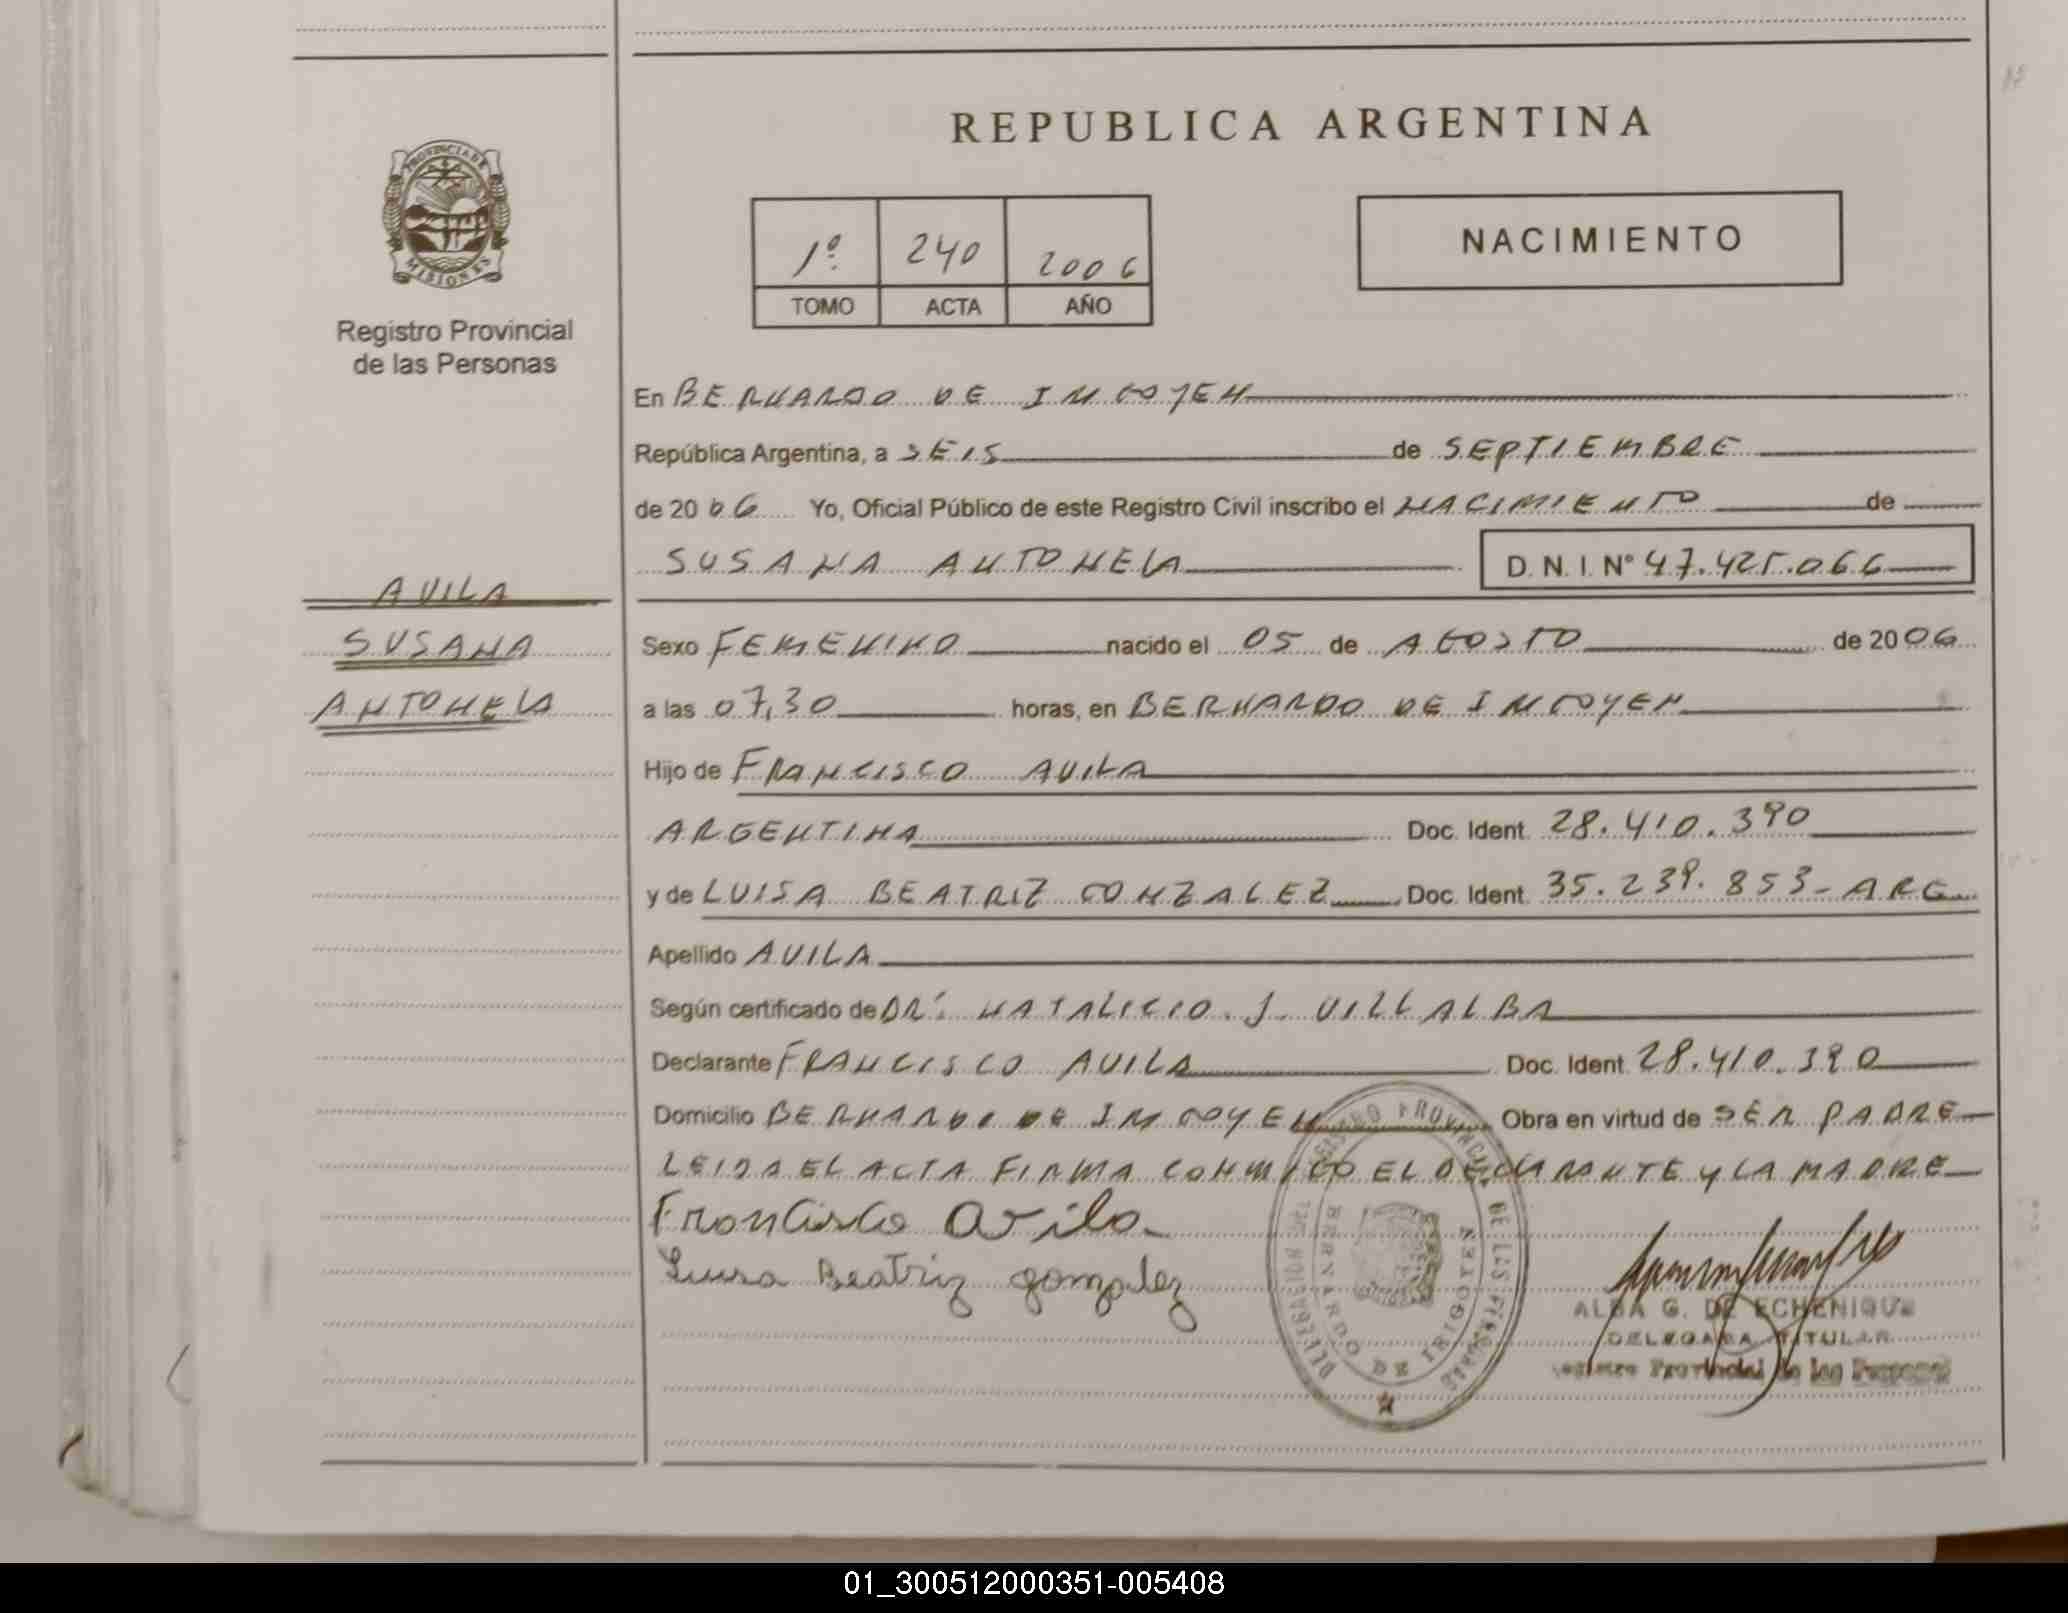 REPUBLICA ARGENTINA
PROVINCIA DE
MISIONES
Registro Provincial
de las Personas
1º 240 2006
TOMO ACTA AÑO
NACIMIENTO
En BERNARDO DE IRIGOYEN
República Argentina, a SEIS de SEPTIEMBRE
de 2006 Yo, Oficial Público de este Registro Civil inscribo el NACIMIENTO de
SUSANA ANTONELA D. N. I. Nº 47.425.066
AVILA
SUSANA
ANTONELA
Sexo FEMENINO nacido el 05 de AGOSTO de 2006
a las 07,30 horas, en BERNARDO DE IRIGOYEN
Hijo de FRANCISCO AVILA
ARGENTINA Doc. Ident. 28.410.390
y de LUISA BEATRIZ GONZALEZ Doc. Ident. 35.239.853- ARG
Apellido AVILA
Según certificado de DR. NATALICIO. J. VILLALBA
Declarante FRANCISCO AVILA Doc. Ident. 28.410.390
Domicilio BERNARDO DE IRIGOYEN Obra en virtud de SER PADRE
LEIDA EL ACTA FIRMA CONMIGO EL DECLARANTE Y LA MADRE
Francisco Avila
Luisa Beatriz gonzalez
REGISTRO PROVINCIAL DE LAS PERSONAS
DELEGACION
BERNARDO DE IRIGOYEN
ALBA G. DE ECHENIQUE
DELEGADA TITULAR
Registro Provincial de las Personas
01_300512000351-005408